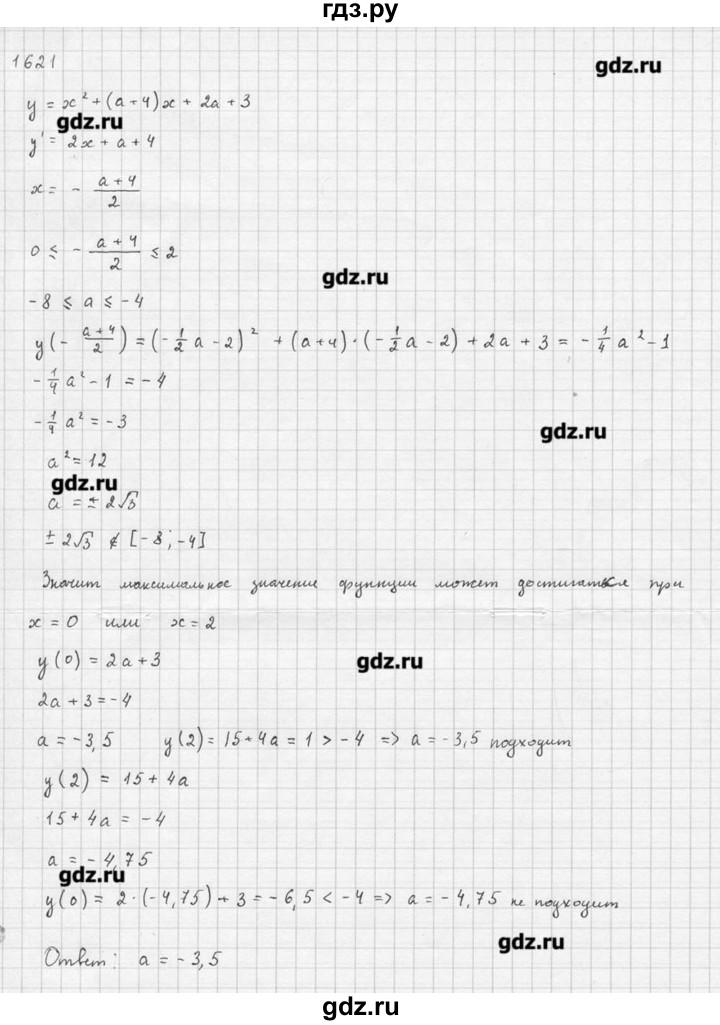 гдз.ру
1621
gdz.ru
y = x² + (a + 4)x + 2a + 3
gdz.ru
y' = 2x + a + 4
x = - (a + 4)/2
0 ≤ - (a + 4)/2 ≤ 2
gdz.ru
-8 ≤ a ≤ -4
y(- (a + 4)/2) = (- 1/2 a - 2)² + (a + 4) · (- 1/2 a - 2) + 2a + 3 = - 1/4 a² - 1
- 1/4 a² - 1 = -4
- 1/4 a² = -3
gdz.ru
a² = 12
gdz.ru
a = ± 2√3
± 2√3 ∉ [-8; -4]
Значит максимальное значение функции может достигаться при
x = 0 или x = 2
y(0) = 2a + 3
gdz.ru
2a + 3 = -4
a = -3,5 y(2) = 15 + 4a = 1 > -4 => a = -3,5 подходит
y(2) = 15 + 4a
15 + 4a = -4
a = -4,75
gdz.ru
y(0) = 2 · (-4,75) + 3 = -6,5 < -4 => a = -4,75 не подходит
gdz.ru
Ответ: a = -3,5
gdz.ru